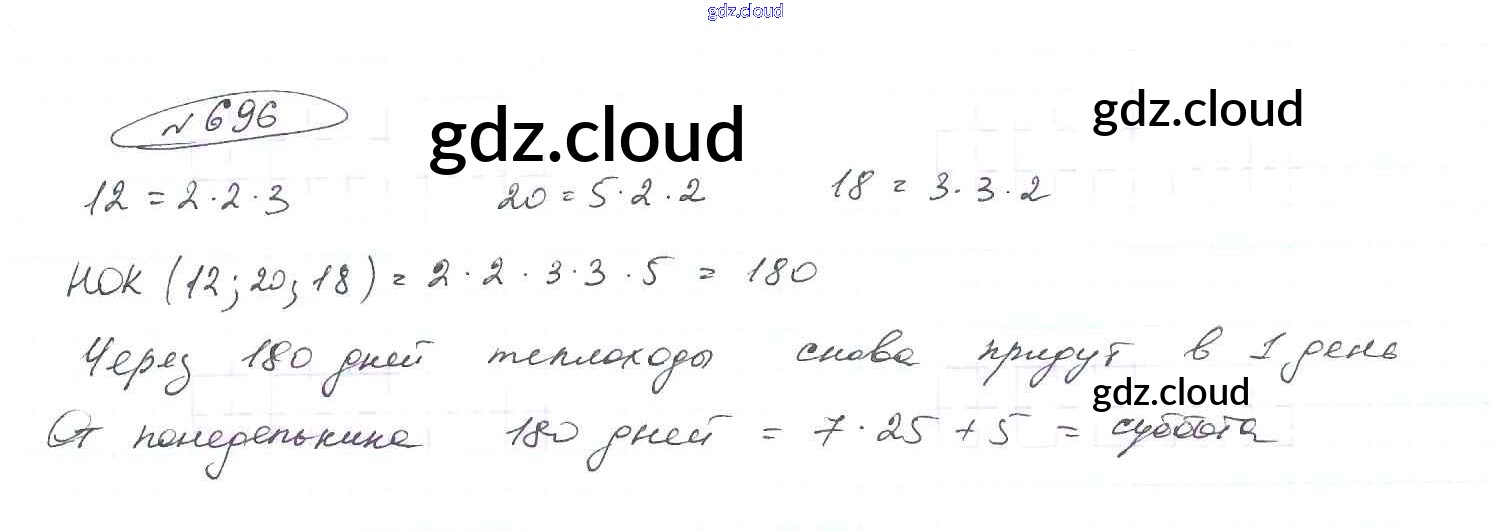 gdz.cloud
№ 696
gdz.cloud
gdz.cloud
12 = 2·2·3 20 = 5·2·2 18 = 3·3·2
НОК (12; 20; 18) = 2·2·3·3·5 = 180
Через 180 дней теплоходы снова придут в 1 день
gdz.cloud
От понедельника 180 дней = 7·25 + 5 = суббота